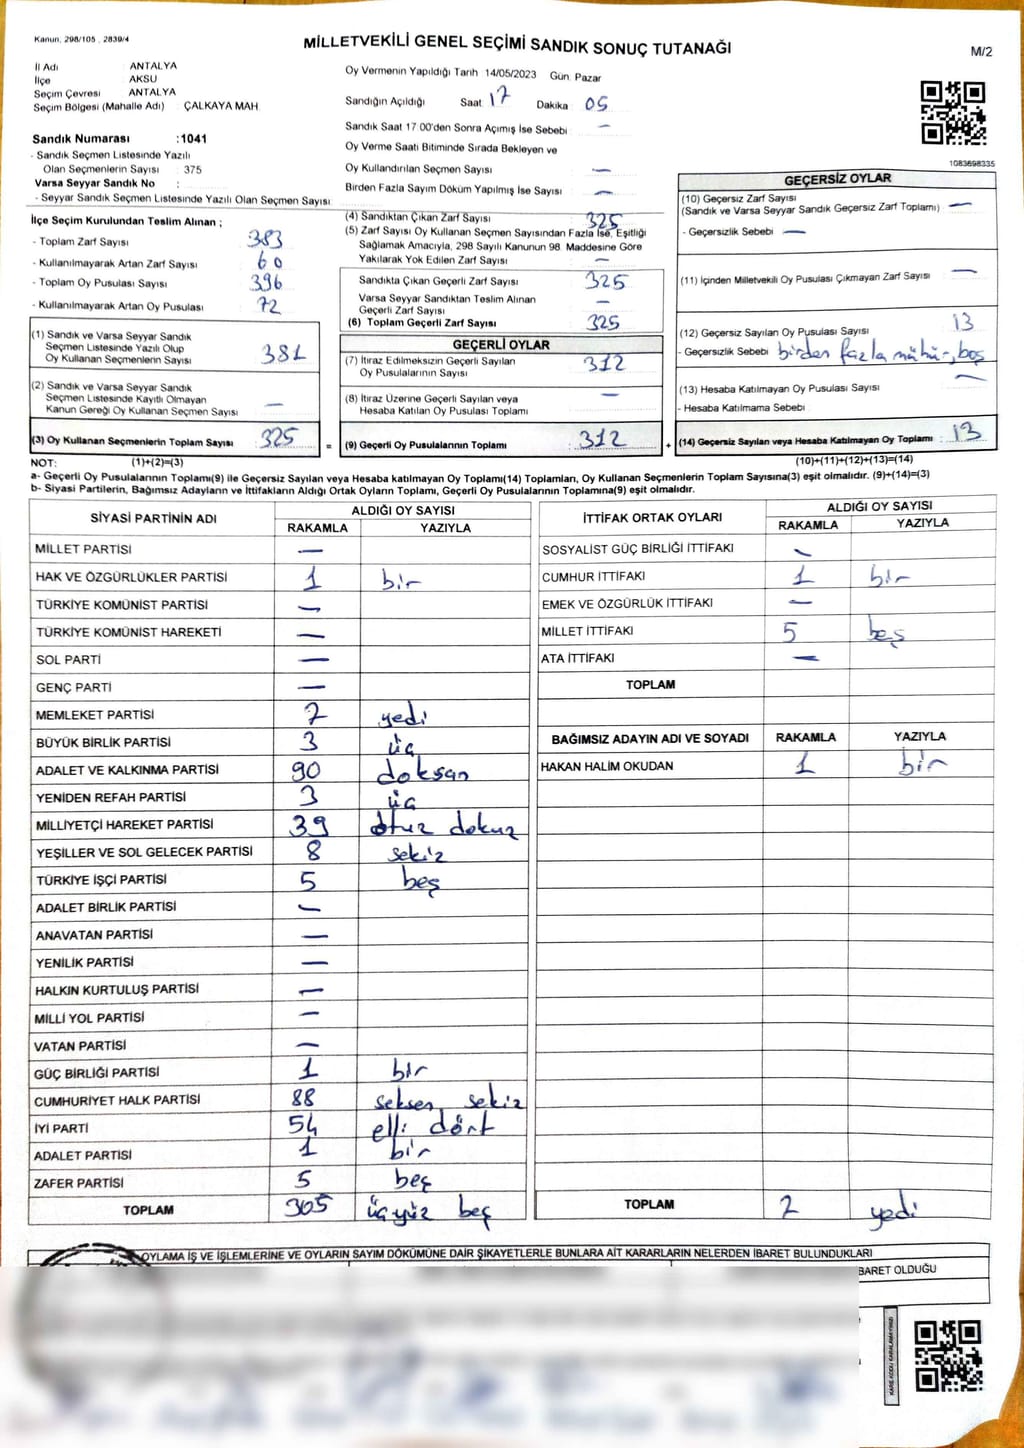 Kanun, 298/105 , 2839/4
MİLLETVEKİLİ GENEL SEÇİMİ SANDIK SONUÇ TUTANAĞI
M/2
İl Adı : ANTALYA
İlçe : AKSU
Seçim Çevresi : ANTALYA
Seçim Bölgesi (Mahalle Adı) : ÇALKAYA MAH.
Sandık Numarası :1041
- Sandık Seçmen Listesinde Yazılı
Olan Seçmenlerin Sayısı : 375
Varsa Seyyar Sandık No :
- Seyyar Sandık Seçmen Listesinde Yazılı Olan Seçmen Sayısı :
Oy Vermenin Yapıldığı Tarih 14/05/2023 Gün: Pazar
Sandığın Açıldığı Saat 17 Dakika 05
Sandık Saat 17 00'den Sonra Açımış İse Sebebi : —
Oy Verme Saati Bitiminde Sırada Bekleyen ve
Oy Kullandırılan Seçmen Sayısı : —
Birden Fazla Sayım Döküm Yapılmış İse Sayısı : —
1083698335
İlçe Seçim Kurulundan Teslim Alınan ;
- Toplam Zarf Sayısı : 383
- Kullanılmayarak Artan Zarf Sayısı : 60
- Toplam Oy Pusulası Sayısı : 396
- Kullanılmayarak Artan Oy Pusulası : 72
(1) Sandık ve Varsa Seyyar Sandık
Seçmen Listesinde Yazılı Olup
Oy Kullanan Seçmenlerin Sayısı :
(2) Sandık ve Varsa Seyyar Sandık
Seçmen Listesinde Kayıtlı Olmayan
Kanun Gereği Oy Kullanan Seçmen Sayısı : —
(3) Oy Kullanan Seçmenlerin Toplam Sayısı : 325 =
(4) Sandıktan Çıkan Zarf Sayısı : 325
(5) Zarf Sayısı Oy Kullanan Seçmen Sayısından Fazla İse, Eşitliği
Sağlamak Amacıyla, 298 Sayılı Kanunun 98 Maddesine Göre
Yakılarak Yok Edilen Zarf Sayısı : —
Sandıkta Çıkan Geçerli Zarf Sayısı : 325
Varsa Seyyar Sandıktan Teslim Alınan
Geçerli Zarf Sayısı : —
(6) Toplam Geçerli Zarf Sayısı : 325
GEÇERLİ OYLAR
(7) İtiraz Edilmeksizin Geçerli Sayılan
Oy Pusulalarının Sayısı : 312
(8) İtiraz Üzerine Geçerli Sayılan veya
Hesaba Katılan Oy Pusulası Toplamı : —
(9) Geçerli Oy Pusulalarının Toplamı : 312 +
GEÇERSİZ OYLAR
(10) Geçersiz Zarf Sayısı
(Sandık ve Varsa Seyyar Sandık Geçersiz Zarf Toplamı) : —
- Geçersizlik Sebebi : —
(11) İçinden Milletvekili Oy Pusulası Çıkmayan Zarf Sayısı : —
(12) Geçersiz Sayılan Oy Pusulası Sayısı : 13
- Geçersizlik Sebebi : birden fazla mühür, boş
(13) Hesaba Katılmayan Oy Pusulası Sayısı : —
- Hesaba Katılmama Sebebi :
(14) Geçersiz Sayılan veya Hesaba Katılmayan Oy Toplamı : 13
NOT: (1)+(2)=(3) (10)+(11)+(12)+(13)=(14)
a- Geçerli Oy Pusulalarının Toplamı(9) ile Geçersiz Sayılan veya Hesaba katılmayan Oy Toplamı(14) Toplamları, Oy Kullanan Seçmenlerin Toplam Sayısına(3) eşit olmalıdır. (9)+(14)=(3)
b- Siyasi Partilerin, Bağımsız Adayların ve İttifakların Aldığı Ortak Oyların Toplamı, Geçerli Oy Pusulalarının Toplamına(9) eşit olmalıdır.
SİYASİ PARTİNİN ADI ALDIĞI OY SAYISI
RAKAMLA YAZIYLA
MİLLET PARTİSİ —
HAK VE ÖZGÜRLÜKLER PARTİSİ 1 bir
TÜRKİYE KOMÜNİST PARTİSİ —
TÜRKİYE KOMÜNİST HAREKETİ —
SOL PARTİ —
GENÇ PARTİ —
MEMLEKET PARTİSİ 7 yedi
BÜYÜK BİRLİK PARTİSİ 3 üç
ADALET VE KALKINMA PARTİSİ 90 doksan
YENİDEN REFAH PARTİSİ 3 üç
MİLLİYETÇİ HAREKET PARTİSİ 39 otuz dokuz
YEŞİLLER VE SOL GELECEK PARTİSİ 8 sekiz
TÜRKİYE İŞÇİ PARTİSİ 5 beş
ADALET BİRLİK PARTİSİ —
ANAVATAN PARTİSİ —
YENİLİK PARTİSİ —
HALKIN KURTULUŞ PARTİSİ —
MİLLİ YOL PARTİSİ —
VATAN PARTİSİ —
GÜÇ BİRLİĞİ PARTİSİ 1 bir
CUMHURİYET HALK PARTİSİ 88 seksen sekiz
İYİ PARTİ 54 elli dört
ADALET PARTİSİ 1 bir
ZAFER PARTİSİ 5 beş
TOPLAM 305 üçyüz beş
İTTİFAK ORTAK OYLARI ALDIĞI OY SAYISI
RAKAMLA YAZIYLA
SOSYALİST GÜÇ BİRLİĞİ İTTİFAKI —
CUMHUR İTTİFAKI 1 bir
EMEK VE ÖZGÜRLÜK İTTİFAKI —
MİLLET İTTİFAKI 5 beş
ATA İTTİFAKI —
TOPLAM
BAĞIMSIZ ADAYIN ADI VE SOYADI RAKAMLA YAZIYLA
HAKAN HALİM OKUDAN 1 bir
TOPLAM 7 yedi
OYLAMA İŞ VE İŞLEMLERİNE VE OYLARIN SAYIM DÖKÜMÜNE DAİR ŞİKAYETLERLE BUNLARA AİT KARARLARIN NELERDEN İBARET BULUNDUKLARI
BARET OLDUĞU